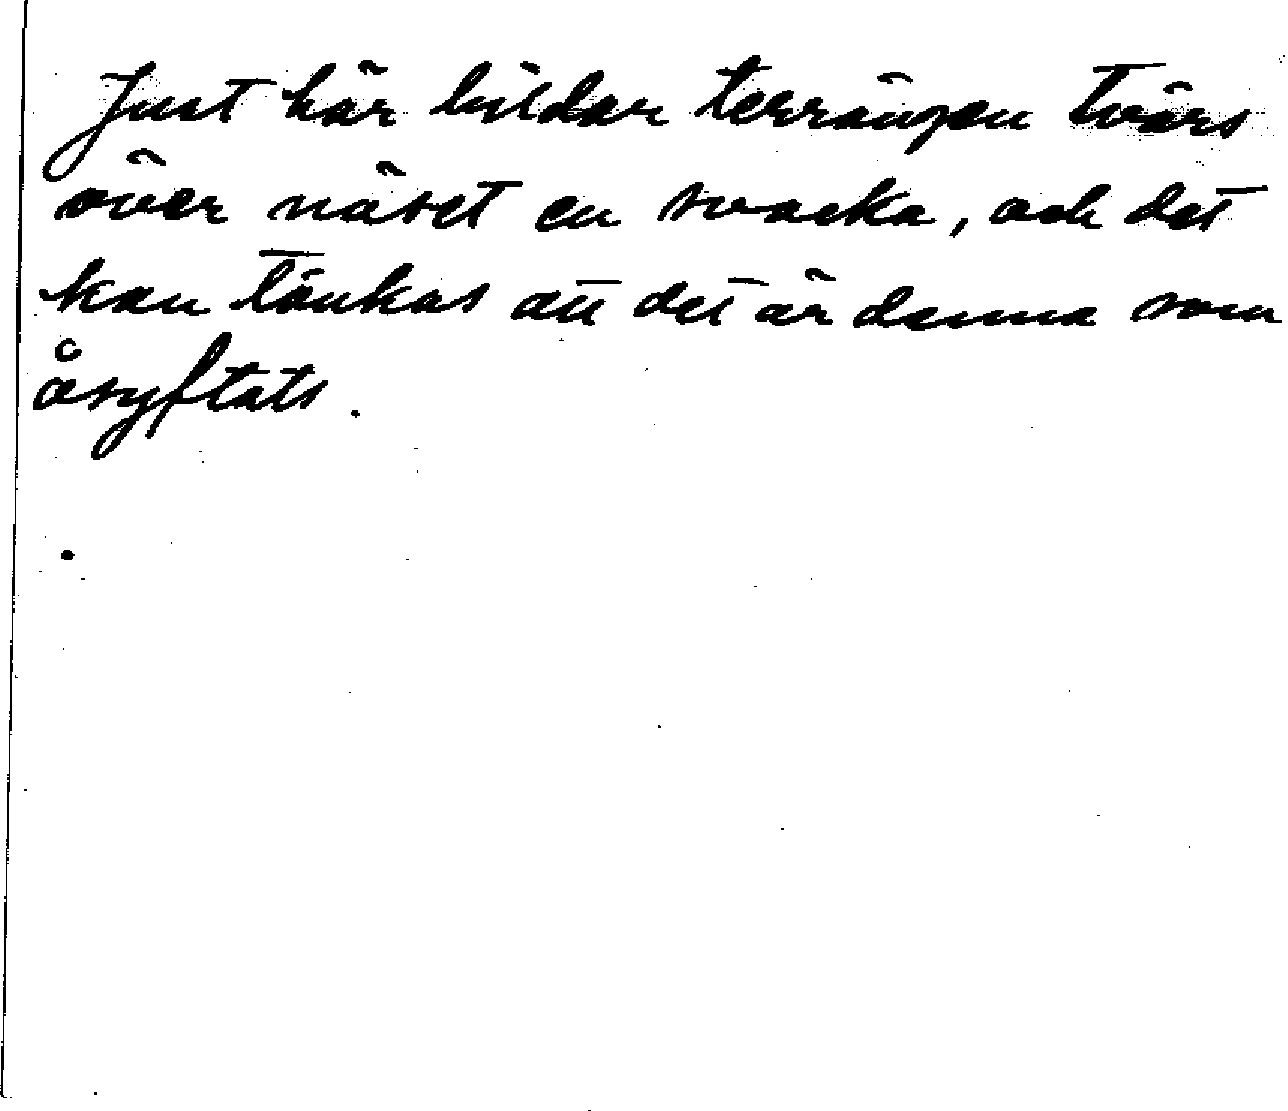 Just här bildar terrängen tvärs
över näset en svacka, och det
kan tänkas att det är denna som
åsyftats.